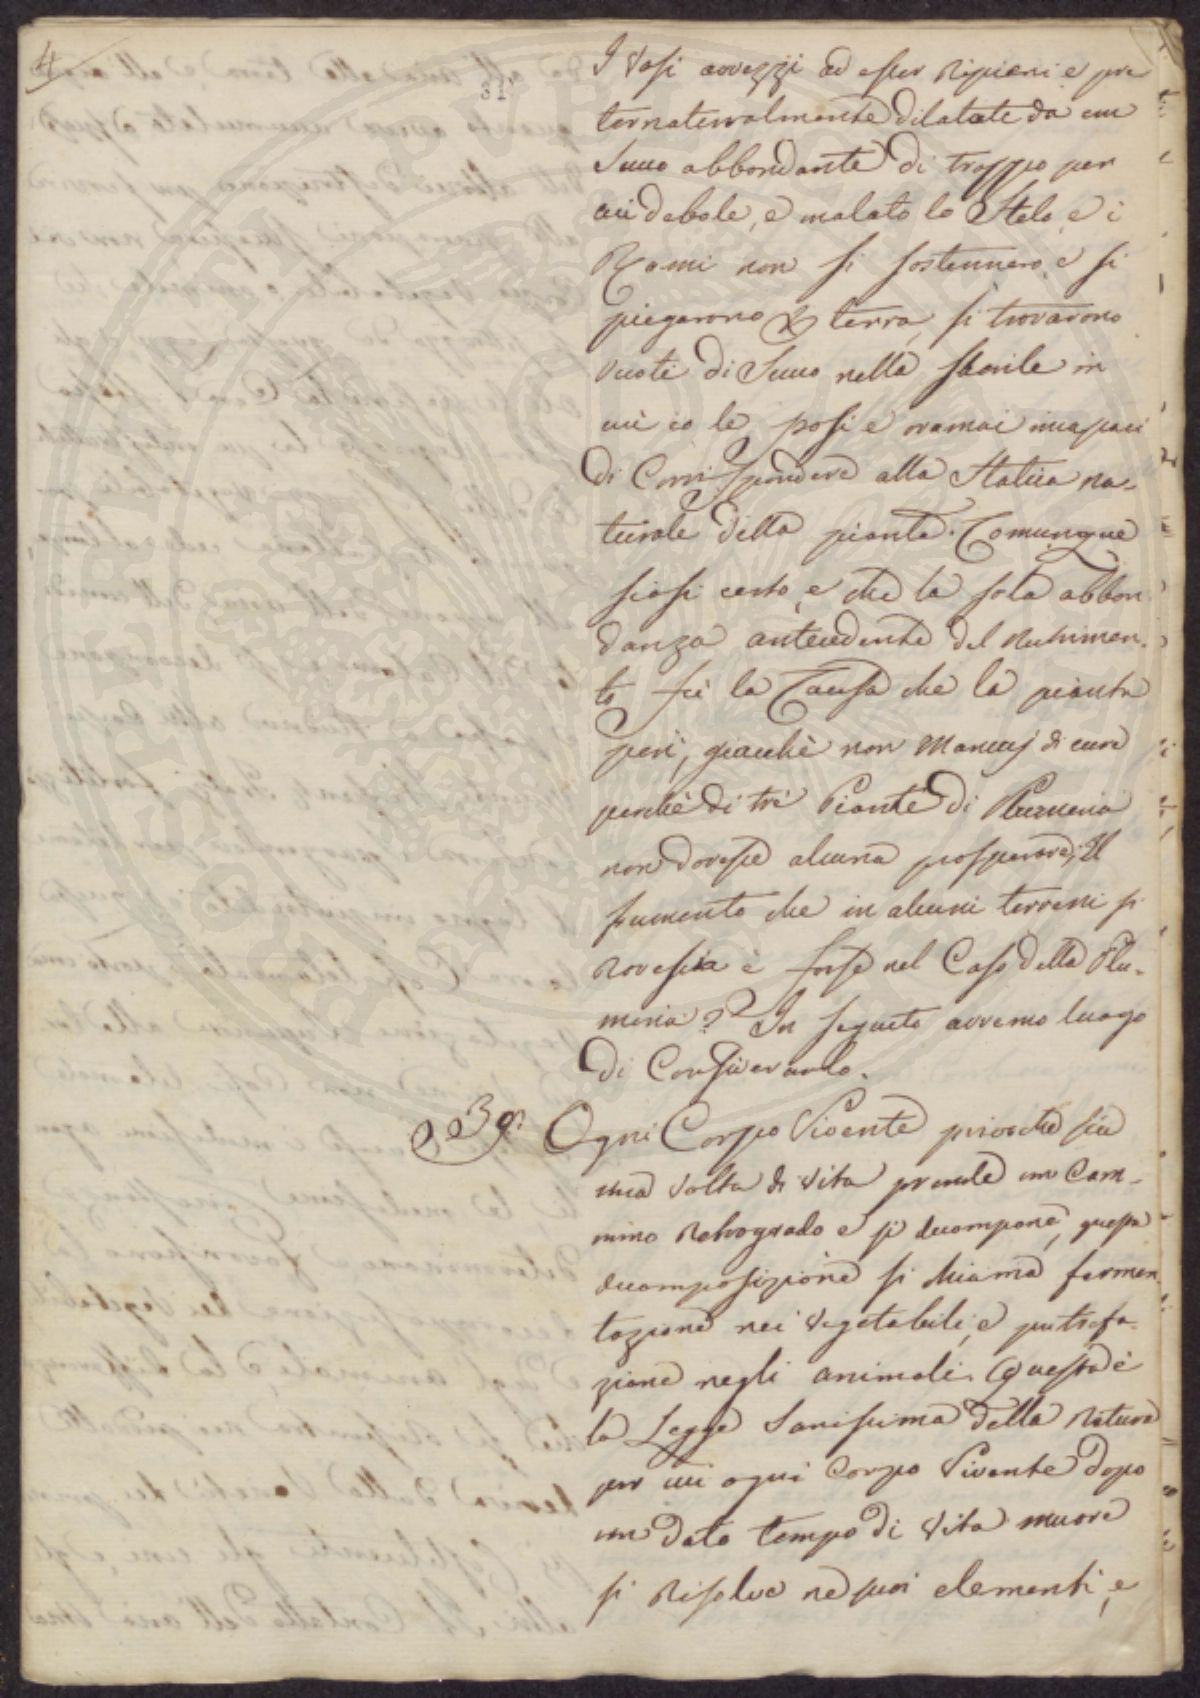 4
31
I Vasi avvezzi ad esser Ripieni e pre
ternaturalmente dilatate da un
Succo abbondante di troppo per
cui debole, e malato lo Stelo e i
Rami non si sostennero e si
piegarono a terra, si trovarono
Vuoti di Succo nella sterile in
cui io le posi e oramai incapaci
di Corrispondere alla Statica na-
turale della pianta. Comunque
siasi certo è che la sola abbon
danza antecedente del Nutrimen-
to fù la Causa che la pianta
perì, giacchè non Mancaj di cure
perchè di trè Piante di Plumeria
non dovesse alcuna prosperare, Il
frumento che in alcuni terreni si
Rovescia è forse nel Caso della Plu-
meria? In seguito avremo luogo
di Considerarlo.
§ 39. Ogni Corpo Vivente priocchè sia
una Volta di Vita prende un Cam-
mino Retrogrado e si decompone, questa
decomposizione si chiama fermen
tazione nei Vegetabili, e putrefa-
zione negli animali. Questa è
la Legge Santissima della Natura
per cui ogni Corpo Vivente dopo
un dato tempo di Vita muore
si Risolve ne suoi elementi, e